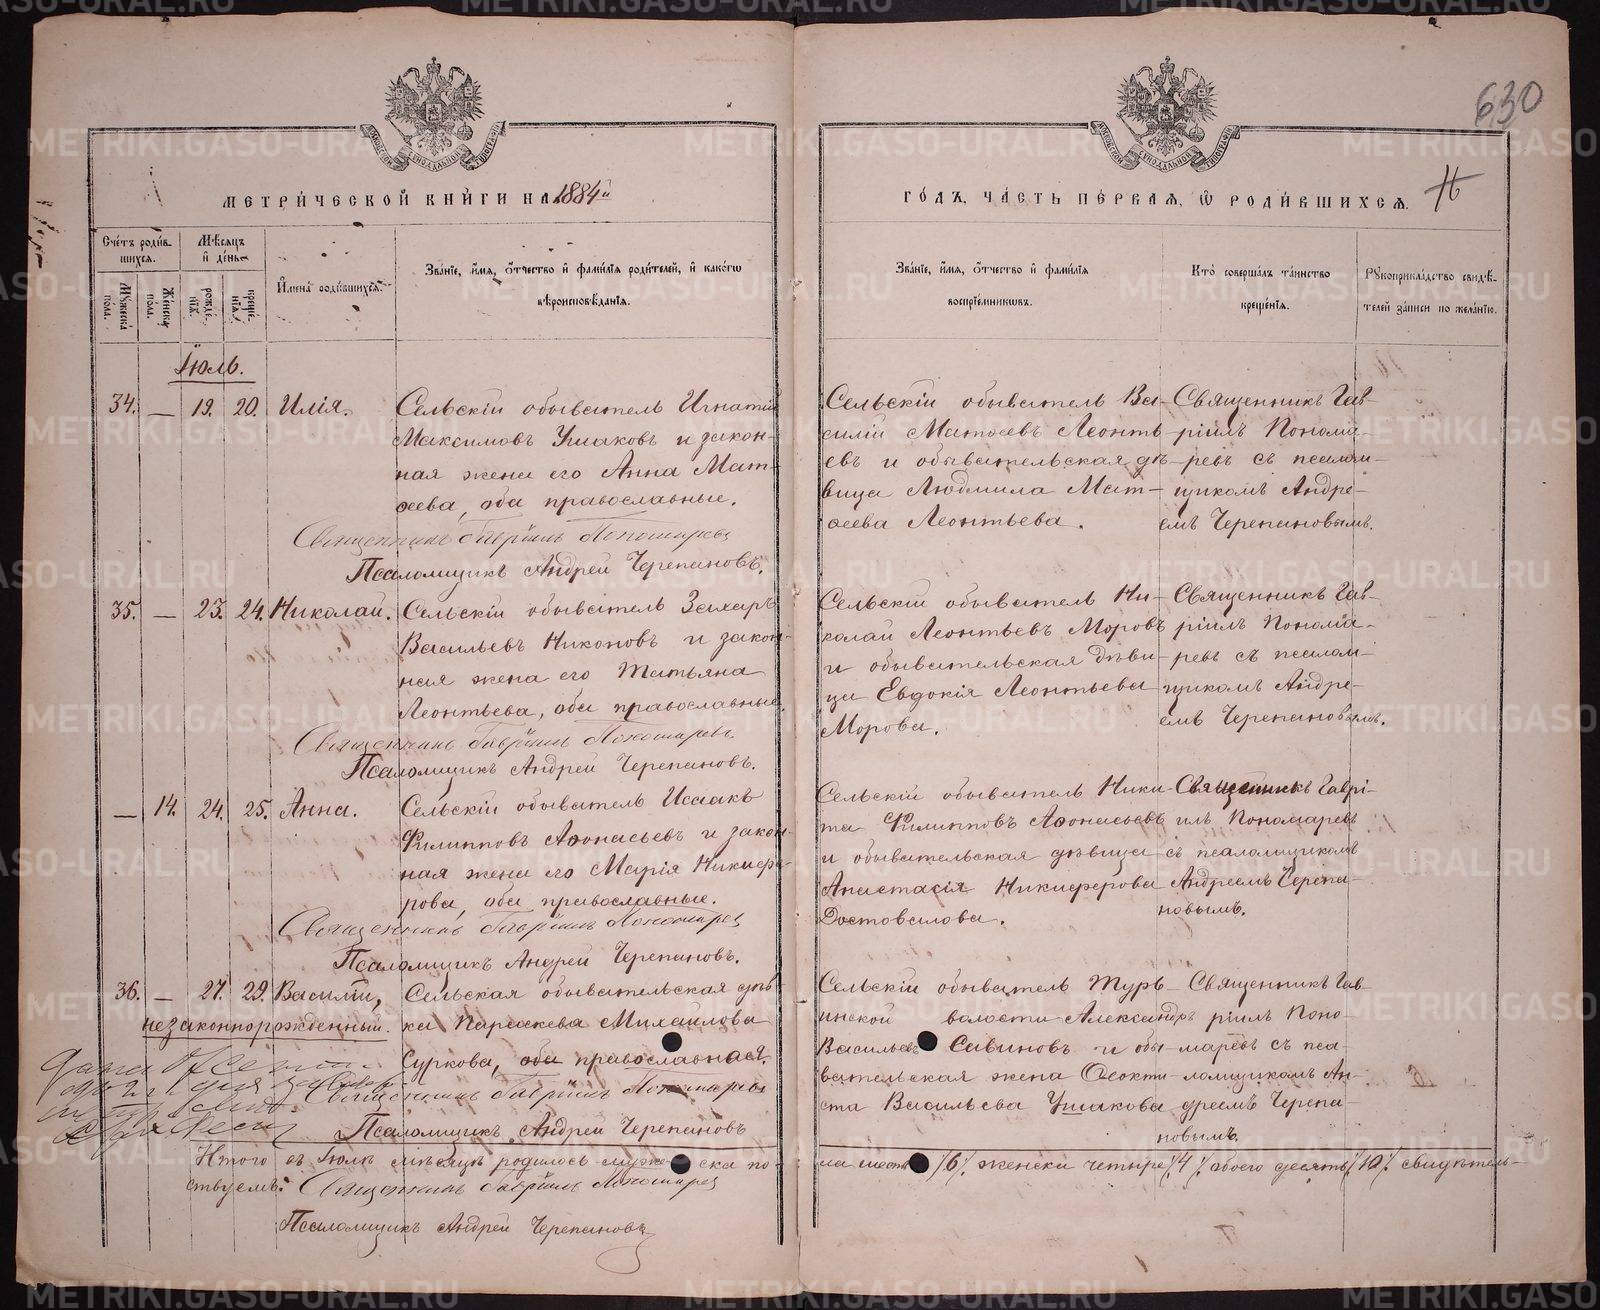 630
МЕТРИ́ЧЕСКОЙ КНИ́ГИ НА 1884й
ГО́ДЪ, ЧА́СТЬ ПЕ́РВАЯ, Ѡ РОДИ́ВШИХСЯ.
Сче́тъ роди́в-
шихся.
Мѣ́сяцъ
и де́нь
Имена̀ роди́вшихся.
Зва́нїе, и́мя, ѻ́тчество и фами́лїя роди́телей, и како́гѡ
вѣроисповѣ́данїя.
Зва́нїе, и́мя, ѻ́тчество и фами́лїя
воспрїе́мниковъ.
Кто̀ соверша́лъ та́инство
креще́нїя.
Рꙋкоприкла́дство свидѣ́-
телей за́писи по жела́нїю.
Мꙋ́жеска
по́ла.
Же́нска
по́ла.
рожде́-
нїѧ.
креще́-
нїѧ.
Іюль.
34. — 19. 20. Илія.
Сельскій обыватель Игнатій
Максимовъ Ушаковъ и закон-
ная жена его Анна Мат-
ѳеева, оба православные.
Священникъ Гавріилъ Пономаревъ
Псаломщикъ Андрей Черепановъ.
Сельскій обыватель Ва-
силій Матѳеевъ Леонть-
евъ и обывательская дѣ-
вица Людмила Мат-
ѳеева Леонтьева.
Священникъ Гав-
ріилъ Понома-
ревъ съ псалом-
щикомъ Андре-
емъ Черепановымъ.
35. — 23. 24. Николай.
Сельскій обыватель Захаръ
Васильевъ Никоновъ и закон-
ная жена его Татьяна
Леонтьева, оба православные.
Священникъ Гавріилъ Пономаревъ
Псаломщикъ Андрей Черепановъ.
Сельскій обыватель Ни-
колай Леонтьевъ Моровъ
и обывательская дѣви-
ца Евдокія Леонтьева
Морова.
Священникъ Гав-
ріилъ Понома-
ревъ съ псалом-
щикомъ Андре-
емъ Черепановымъ.
— 14. 24. 25. Анна.
Сельскій обыватель Исаакъ
Филипповъ Аѳонасьевъ и закон-
ная жена его Марія Никифо-
рова, оба православные.
Священникъ Гавріилъ Пономаревъ
Псаломщикъ Андрей Черепановъ.
Сельскій обыватель Ники-
та Филипповъ Аѳонасьевъ
и обывательская дѣвица
Анастасія Никиферова
Достовалова.
Священникъ Гаврі-
илъ Пономаревъ
съ псаломщикомъ
Андреемъ Черепа-
новымъ.
36. — 27. 29. Василій,
незаконнорожденный.
Сельская обывательская дѣв-
ка Параскева Михайлова
Суркова, оба православная.
Священникъ Гавріилъ Пономаревъ
Псаломщикъ Андрей Черепановъ
Сельскій обыватель Турь-
инской волости Александръ
Васильевъ Савиновъ и обы-
вательская жена Ѳеокти-
ста Васильева Ушакова
Священникъ Гав-
ріилъ Поно-
маревъ съ пса-
ломщикомъ Ан-
дреемъ Черепа-
новымъ.
Итого въ Іюлѣ мѣсяцѣ родилось мужеска по-
ла шесть /6/, женска четыре /4/, обоего десять /10/ свидѣтель-
ствуемъ: Священникъ Гавріилъ Пономаревъ
Псаломщикъ Андрей Черепановъ